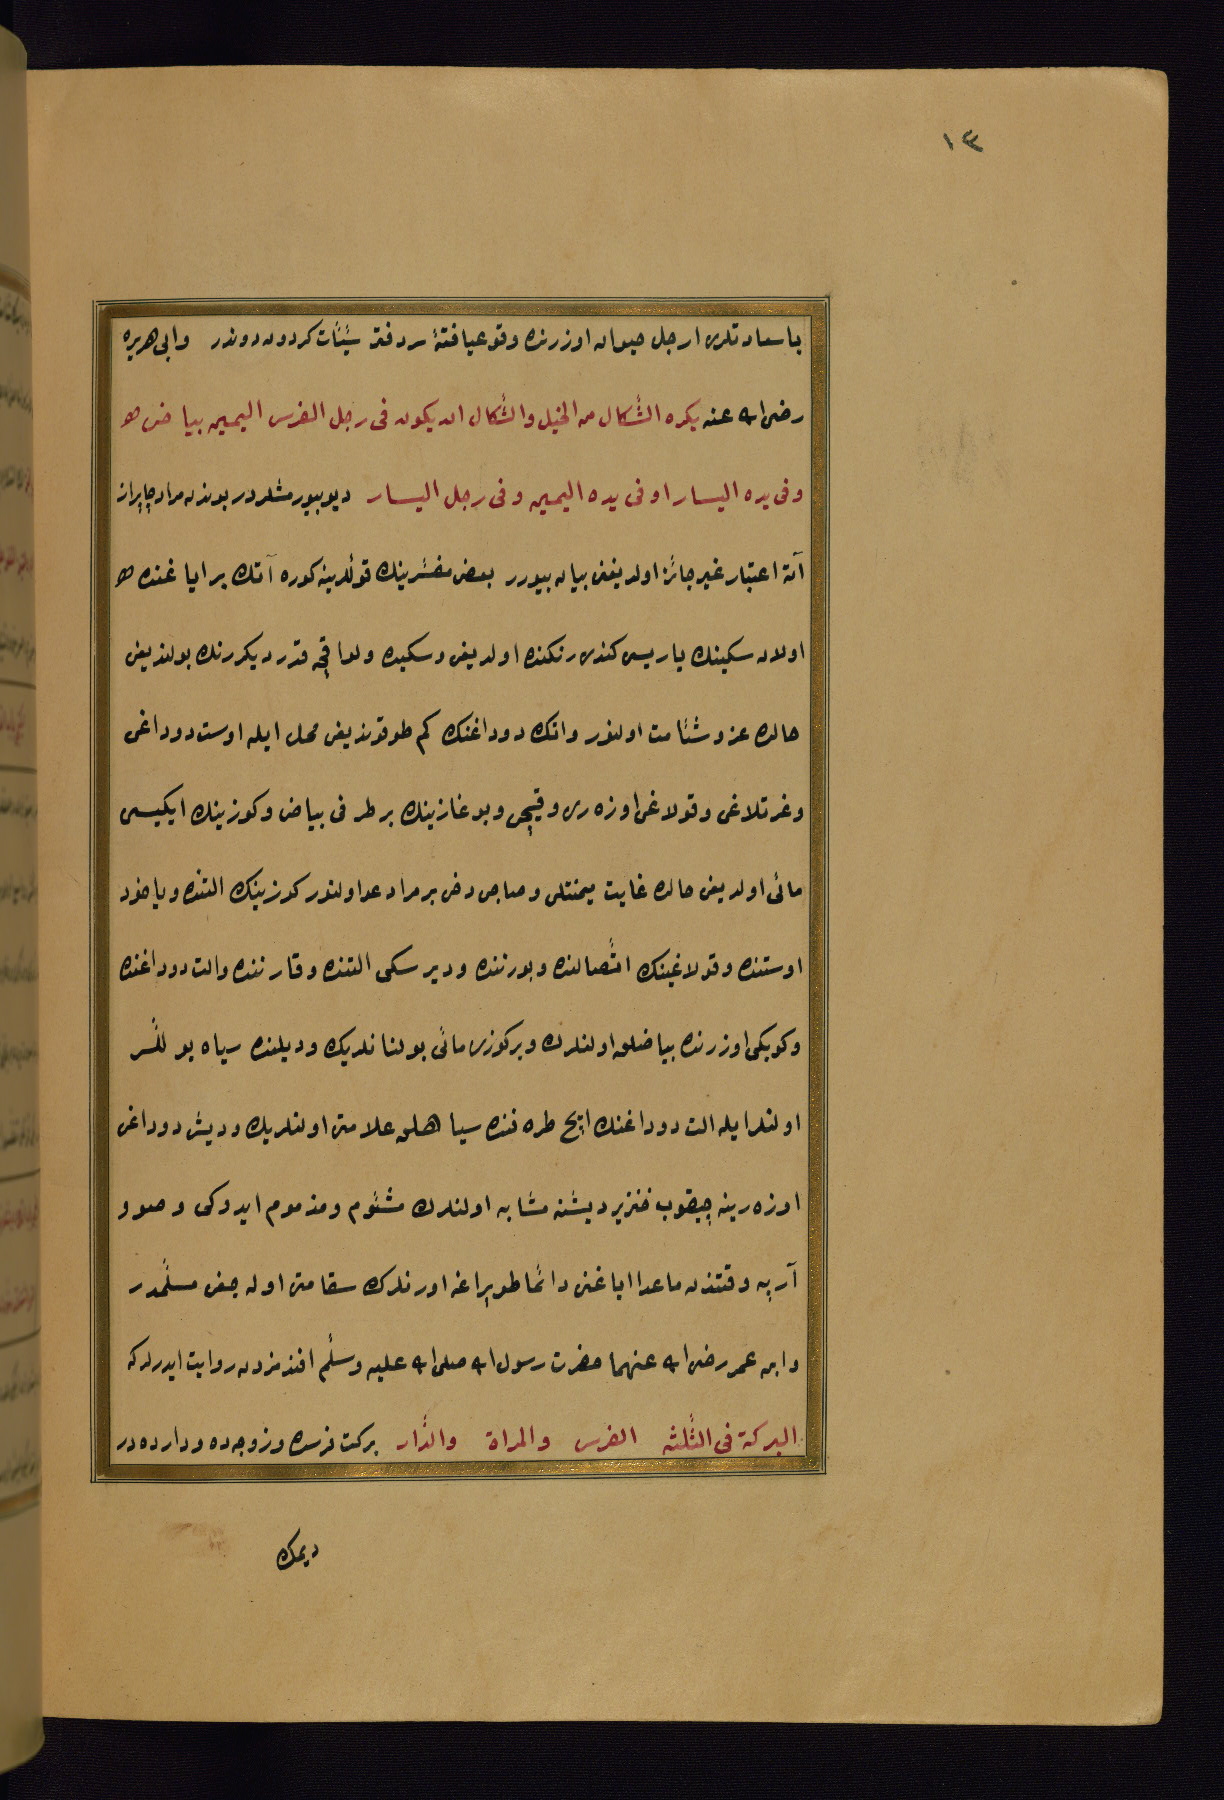 ١٣
باسعادتلری ارجل حیوان اوزرنده وقوعیافتهٔ سیّئات کردون دوندر وابی هریره
رضی الله عنه یکره الشّکال من الخیل والشّکال ان یکون فی رجل الفرس الیمین بیاض
وفی یده الیسار او فی یده الیمین وفی رجل الیسار دیو بیورمشلردر بوندن مراد چاپراز
آته اعتبار غیر جائز اولدیغن بیان بیورر بعض مفسّرینک قولدینه کوره آتک بر ایاغنده
اولان سکینک یاریسی کندی رنکنده اولدیغی وسکیده ولو اقچه قدر دیکر رنک بولندیغی
حالده عزو شئامت اولنور وانک دوداغنک کم طوقوندیغی محل ایله اوست دوداغی
وغرتلاغی وقولاغی اوزه ری وقیچی وبوغازینک بر طرفی بیاض وکوزینک ایکیسی
مائی اولدیغی حالده غایت میمنتلی وصاحبی دخی بر مراد عد اولنور کوزینک التنده ویاخود
اوستنده وقولاغینک اتّصالنده وبورننده ودیرسکی التنده وقارننده والت دوداغنده
وکوبکی اوزرنده بیاضلو اولنلرک وبر کوزی مائی بولنانلریک ودیلنده سیاه بو للّر
اولنلر ایله الت دوداغنک ایچ طرفنده سیاهلو علامتی اولنلریک ودیش دوداغی
اوزه رینه چیقوب خنزیر دیشنه مشابه اولنلرک مشئوم ومذموم ایدوکی وصو و
آرپه وقتندن ماعدا ایاغنی دائما طوپراغه اورنلرک سقامتی اوله جغی مسلّمدر
وابن عمر رضی الله عنهما حضرت رسول الله صلی الله علیه وسلّم افندمزدن روایت ایدرلر که
البرکة فی الثّلثه الفرس والمراة والدّار برکت فرسده وزوجه ده وداردهدر
دیمک